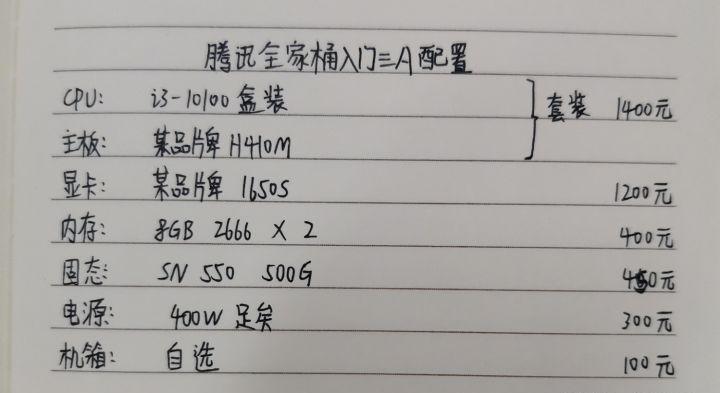 腾讯全家桶入门三A配置
CPU: i3-10100 盒装
套装 1400元
主板: 某品牌 H410M
显卡: 某品牌 1650S 1200元
内存: 8GB 2666 X 2 400元
固态: SN 550 500G 450元
电源: 400W 足矣 300元
机箱: 自选 100元